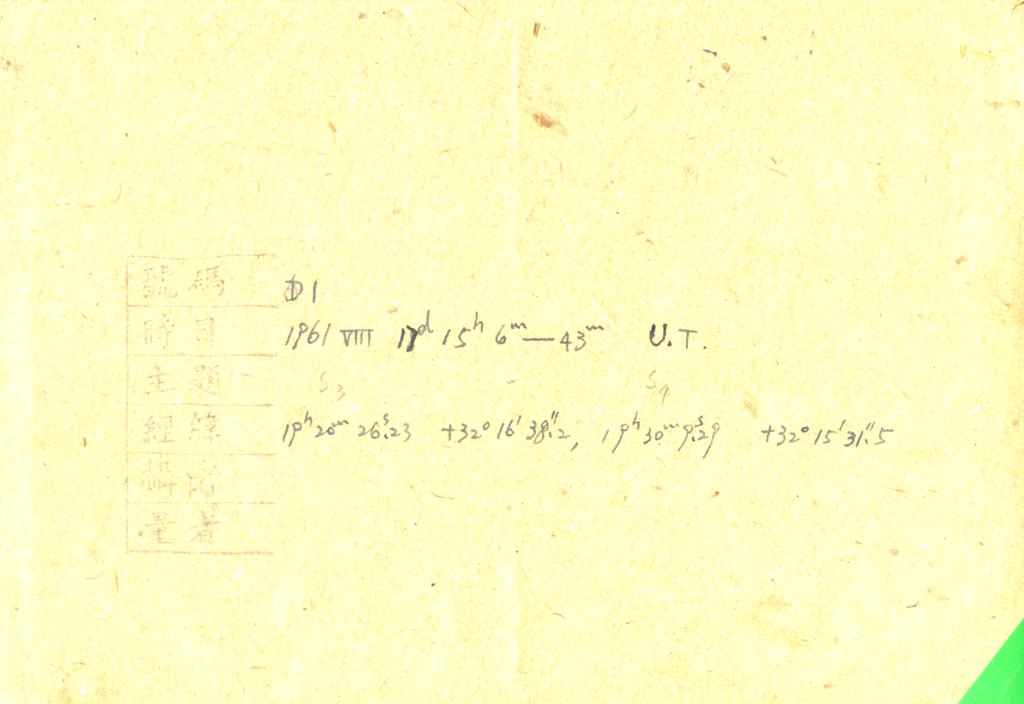 號碼 D1
時日 1961 VIII 17ᵈ 15ʰ 6ᵐ—43ᵐ U.T.
主題 S₃ S₄
經緯 19ʰ20ᵐ26ˢ.23 +32°16′38″.2, 19ʰ30ᵐ9ˢ.29 +32°15′31″.5
攝
量者